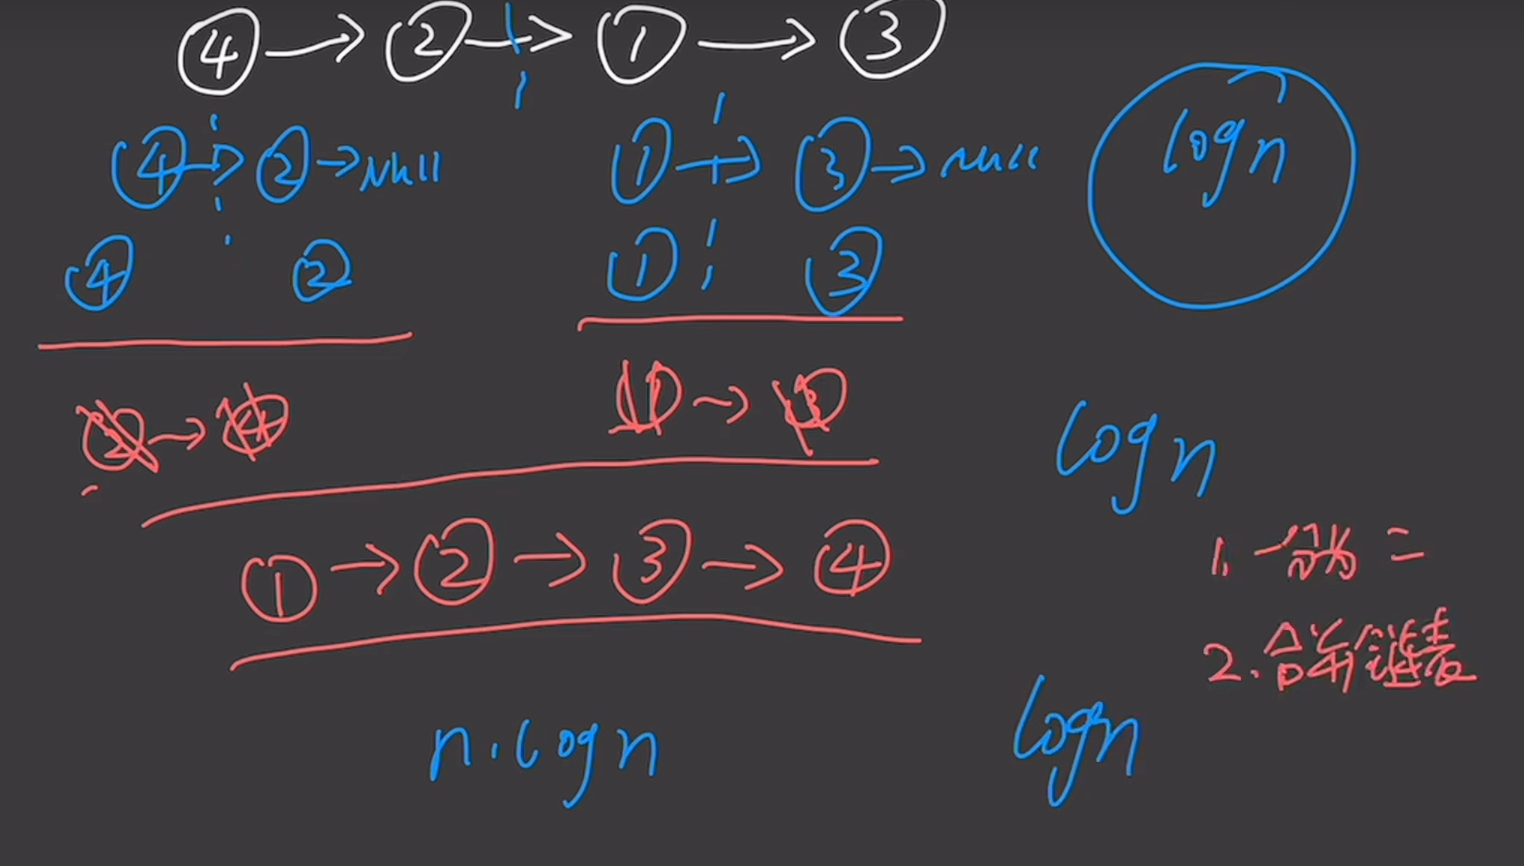 ④ → ② → ① → ③
④ → ② → Null ① → ③ → Null
log n
④ ② ① ③
② → ④ ① → ③
log n
① → ② → ③ → ④
1. 一分为二
2. 合并链表
n·log n
log n